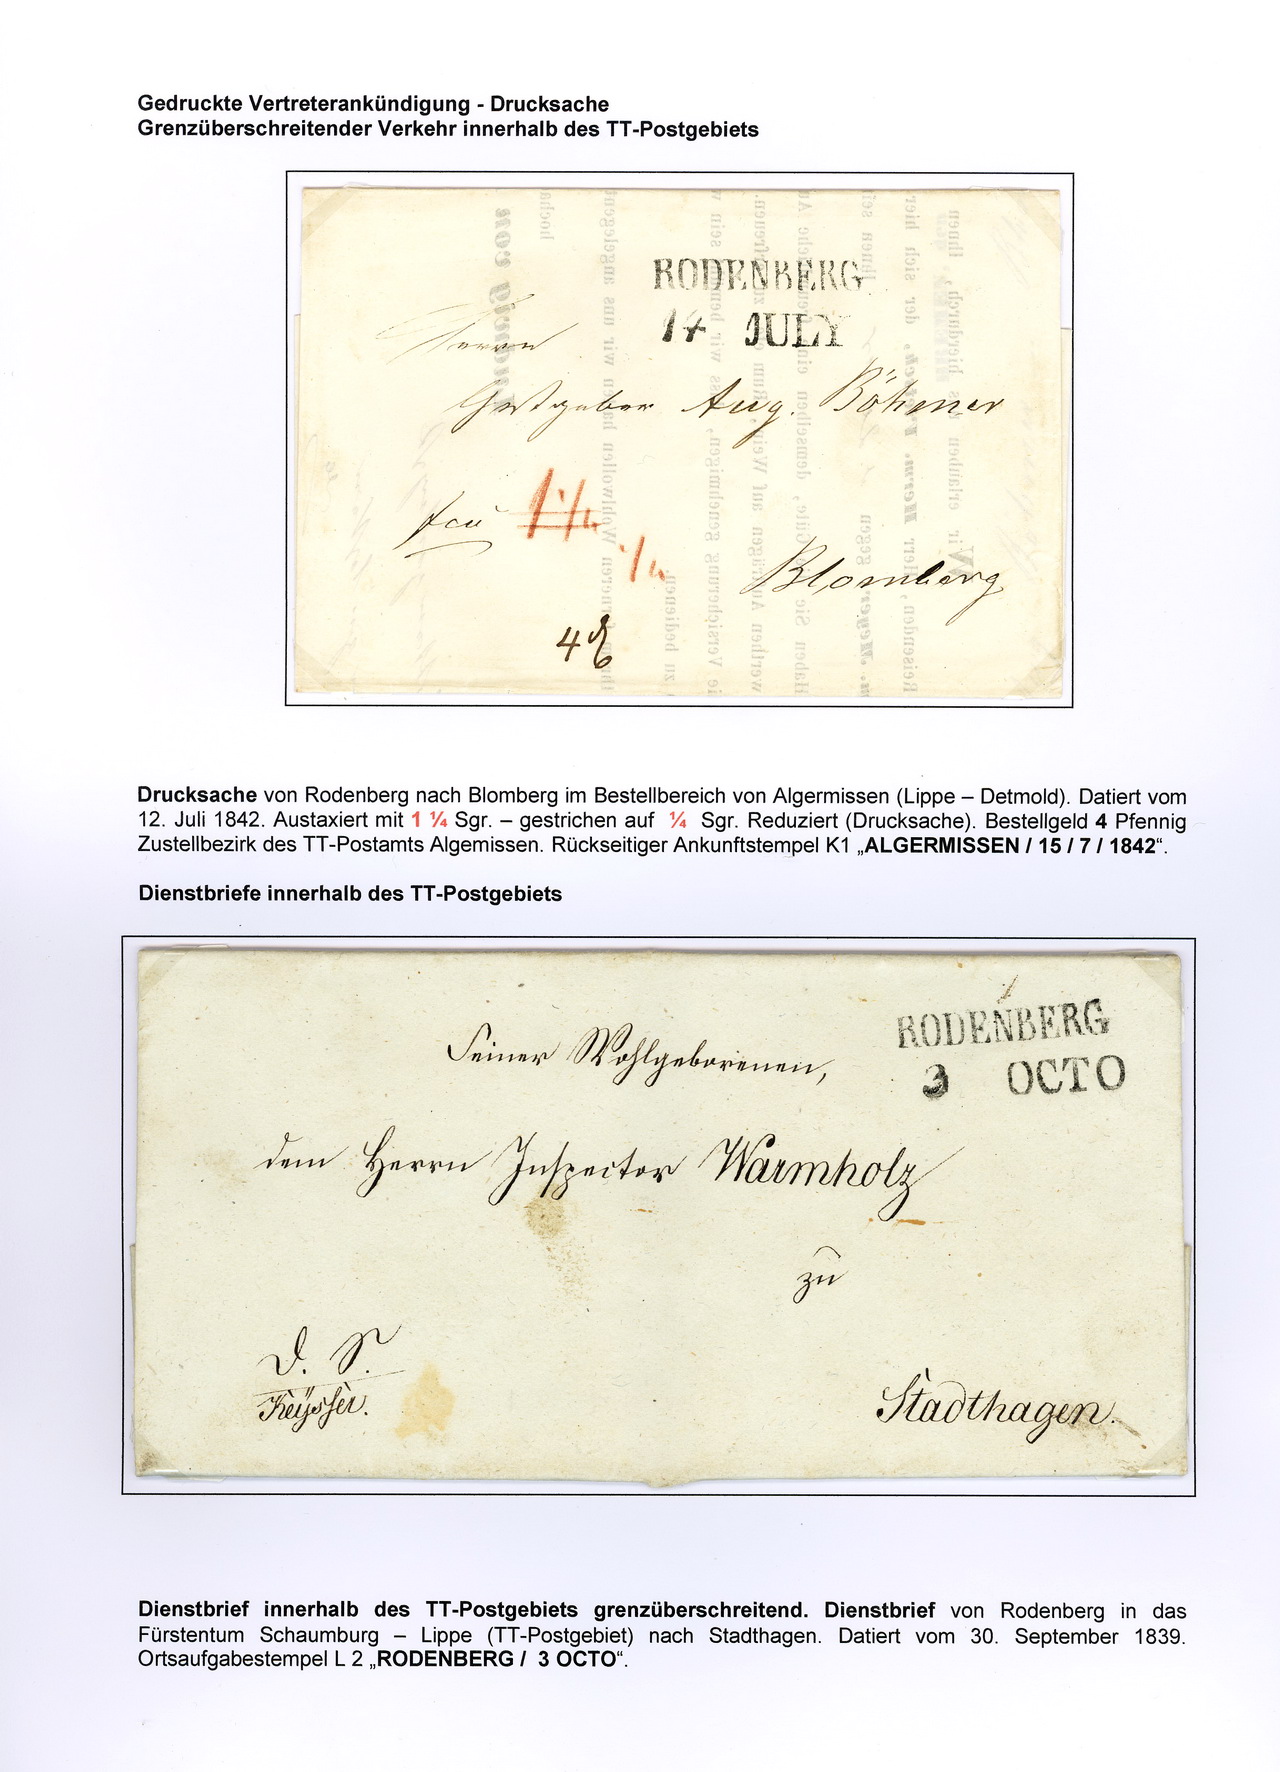 Gedruckte Vertreterankündigung - Drucksache
Grenzüberschreitender Verkehr innerhalb des TT-Postgebiets
RODENBERG
14 JULY
Herrn
Gastgeber Aug. Böhmer
1 1/4
1/4
Blomberg
4
Drucksache von Rodenberg nach Blomberg im Bestellbereich von Algermissen (Lippe – Detmold). Datiert vom
12. Juli 1842. Austaxiert mit 1 ¼ Sgr. – gestrichen auf ¼ Sgr. Reduziert (Drucksache). Bestellgeld 4 Pfennig
Zustellbezirk des TT-Postamts Algemissen. Rückseitiger Ankunftstempel K1 „ALGERMISSEN / 15 / 7 / 1842“.
Dienstbriefe innerhalb des TT-Postgebiets
RODENBERG
3 OCTO
Seiner Wohlgeborenen,
dem Herrn Inspector Warmholz
zu
D. S.
Keÿsser.
Stadthagen.
Dienstbrief innerhalb des TT-Postgebiets grenzüberschreitend. Dienstbrief von Rodenberg in das
Fürstentum Schaumburg – Lippe (TT-Postgebiet) nach Stadthagen. Datiert vom 30. September 1839.
Ortsaufgabestempel L 2 „RODENBERG / 3 OCTO“.